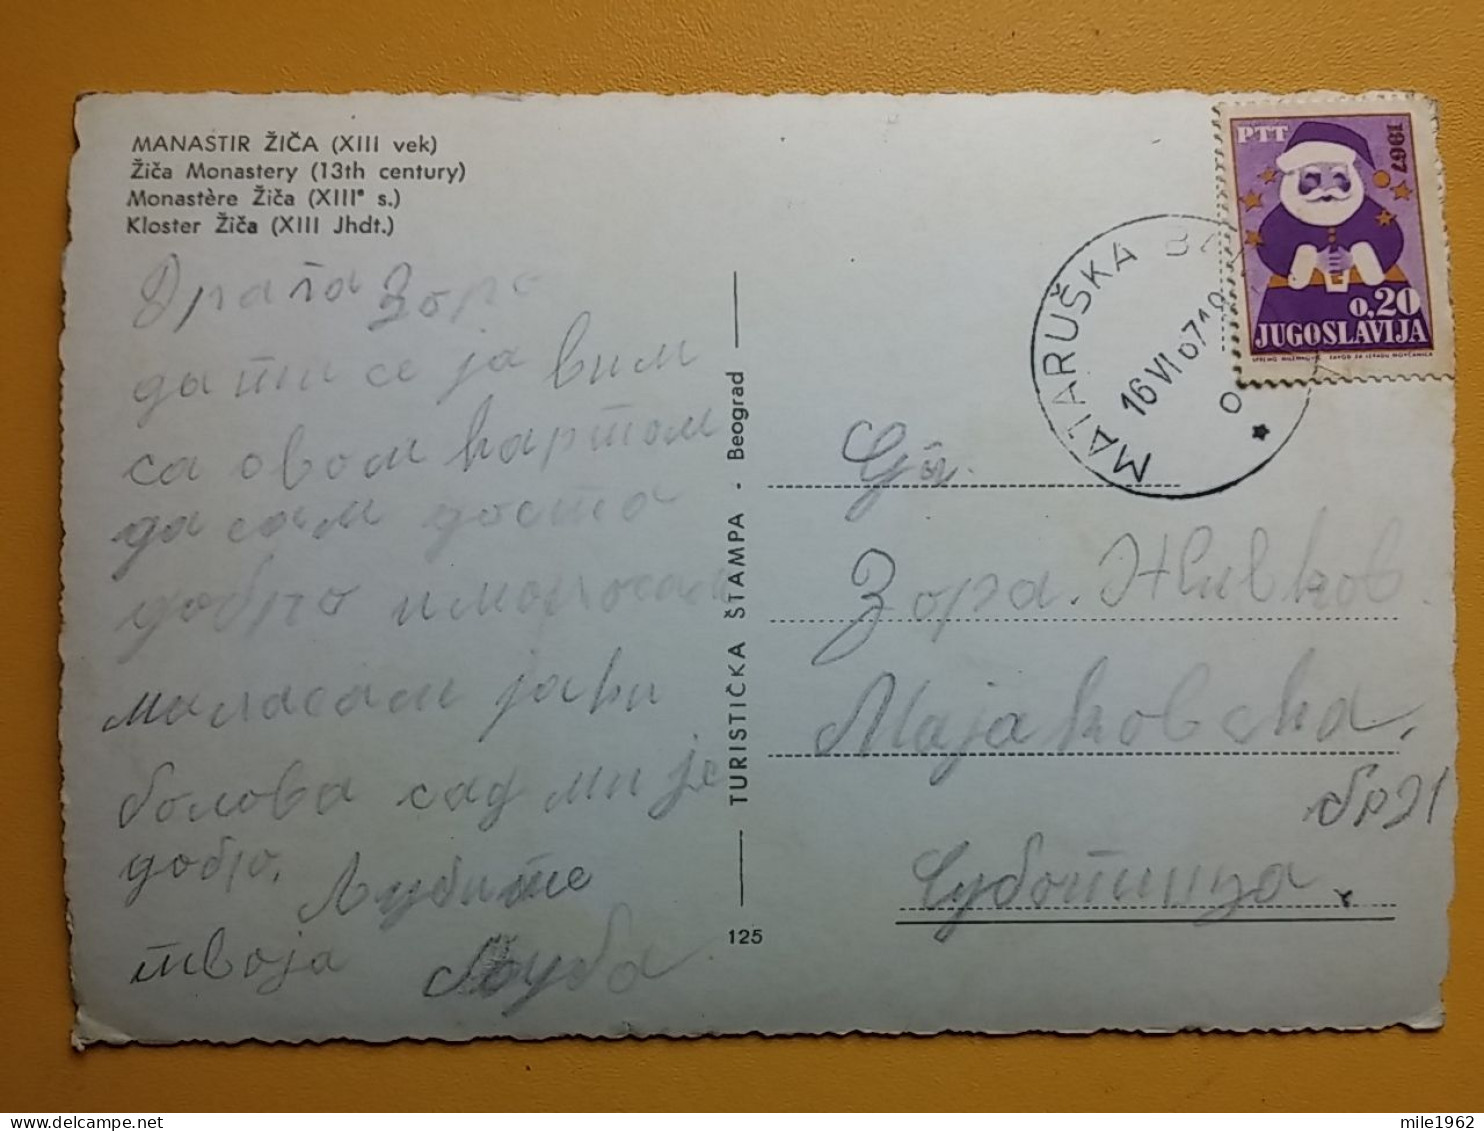 MANASTIR ŽIČA (XIII vek)
Žiča Monastery (13th century)
Monastère Žiča (XIIIe s.)
Kloster Žiča (XIII Jhdt.)
Драга Зоро
да ти се јавим
са овом картом
да сам доста
добро и
мила сам јаки
болова сад ми је
добро. Љубите
твоја Љуба
TURISTIČKA ŠTAMPA - Beograd
125
PTT
1967
0,20
JUGOSLAVIJA
MATARUŠKA
16 VI 67 19
Гђа.
Зора. Живков.
Мајаковска,
бр 21
Суботица
mile1962